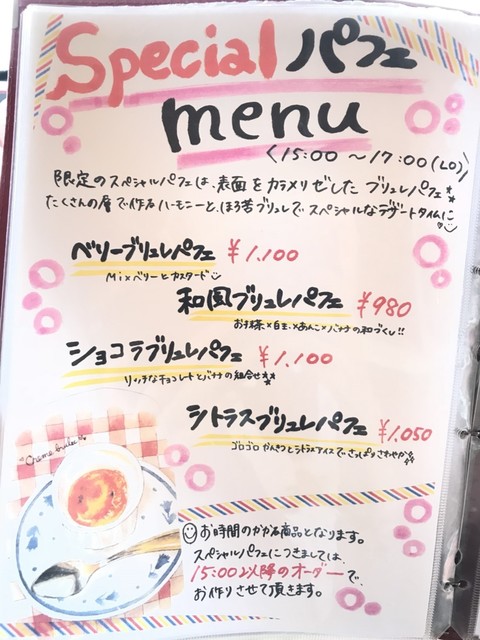 Special パフェ
menu
〈15:00 〜17:00(LO)〉
限定のスペシャルパフェは、表面をカラメリゼしたブリュレパフェ
たくさんの層で作るハーモニーと、ほろ苦ブリュレでスペシャルなデザートタイムに
ベリーブリュレパフェ ¥1.100
Mixベリーとカスタード
和風ブリュレパフェ ¥980
お抹茶×白玉×あんこ×バナナの和づくし!!
ショコラブリュレパフェ ¥1.100
リッチなチョコレートとバナナの組合せ
シトラスブリュレパフェ ¥1.050
ゴロゴロかんきつとシトラスアイスでさっぱりさわやか
Creme brulee
お時間のかかる商品となります。
スペシャルパフェにつきましては、
15:00以降のオーダーで、
お作りさせて頂きます。